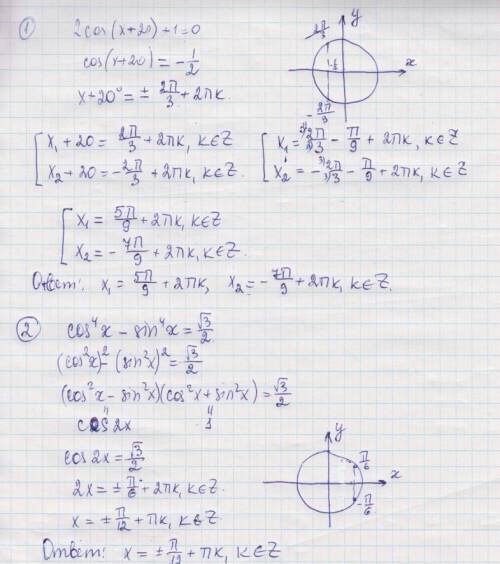 ① 2cos(x+20)+1=0
cos(x+20°)=-1/2
x+20°=± 2π/3+2πk.
[ x₁+20= 2π/3+2πk, k∈Z
x₂+20=-2π/3+2πk, k∈Z.
[ x₁= 2π/3 - π/9 +2πk, k∈Z
x₂=-2π/3 - π/9+2πk, k∈Z
[ x₁= 5π/9+2πk, k∈Z
x₂=- 7π/9+2πk, k∈Z.
Ответ: x₁= 5π/9+2πk, x₂=- 7π/9+2πk, k∈Z.
y
2π/3
x
-2π/3
② cos⁴x - sin⁴x = √3/2
(cos²x)²-(sin²x)²= √3/2
(cos²x-sin²x)(cos²x+sin²x)= √3/2
cos2x 1
cos2x= √3/2
2x=± π/6+2πk, k∈Z.
x=± π/12+πk, k∈Z.
Ответ: x=± π/12+πk, k∈Z
y
π/6
x
-π/6